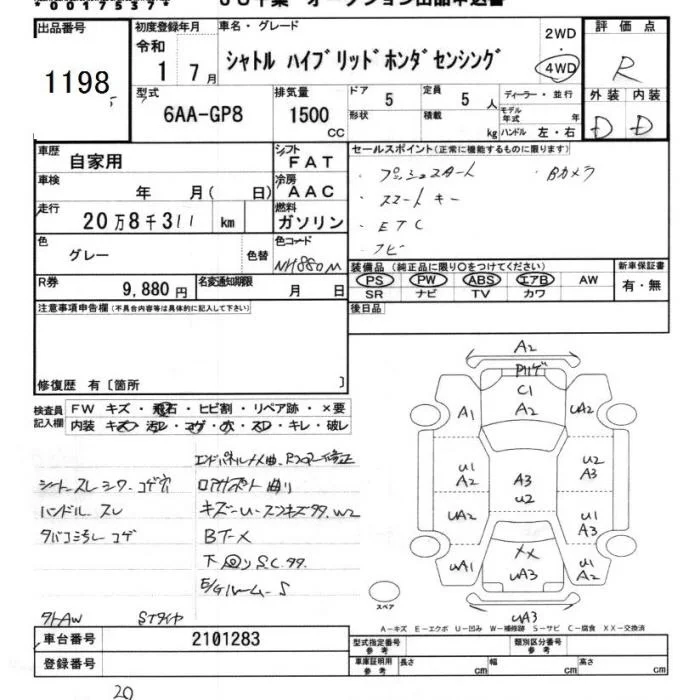 出品番号
1198
初度登録年月
令和
1 7月
車名・グレード
シャトル ハイブリッドホンダセンシング
2WD
4WD
評価点
R
外装 内装
D D
型式
6AA-GP8
排気量
1500
CC
ドア
5
定員
5 人
ディーラー・並行
モデル年式 年
形状
積載
kg
ハンドル 左・右
車歴
自家用
シフト
FAT
車検
年 月( 日)
冷房
AAC
走行
20万8千311 km
燃料
ガソリン
色
グレー
色替
色コード
NH880M
R券
9,880円
名変通知期限
月 日
セールスポイント(正常に機能するものに限ります)
・プッシュスタート ・Bカメラ
・スマートキー
・ETC
・ナビ
装備品(純正品に限り〇をつけてください)
PS PW ABS エアB AW
SR ナビ TV カワ
新車保証書
有・無
注意事項申告欄(不具合内容等は具体的に記入して下さい)
後日品
修復歴 有〔箇所 〕
検査員記入欄
FW キズ・飛石・ヒビ割・リペア跡・×要
内装 キズ・汚レ・コゲ・穴・スレ・キレ・破レ
シートスレ シワ・コゲ穴
ハンドル スレ
タバコ汚レ コゲ
ロアサポート曲り
キズ・U・スンキズ多々.W2
BT-X
下回りS.C.多々
E/Gルーム・S
社外AW STタイヤ
A2
C1
A2
A1
UA2
U1
A2
A3
U2
U2
A3
UA2
U1
A3
UA1
XX
UA3
U1
A2
UA3
スペア
A-キズ E-エクボ U-凹み W-補修跡 S-サビ C-腐食 XX-交換済
車台番号
2101283
登録番号
型式指定番号
参考
類別区分番号
参考
車庫証明用
参考
長さ cm 幅 cm 高さ cm
20